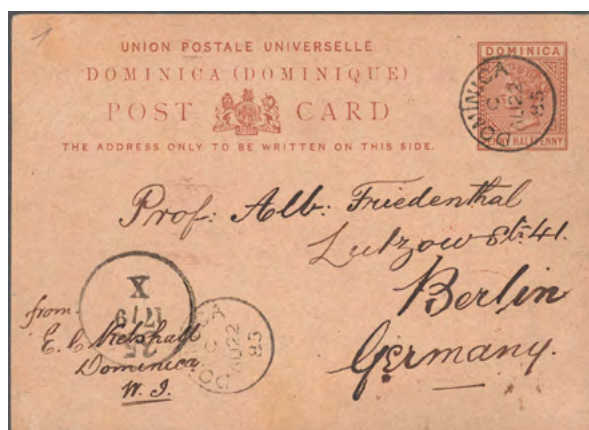 1
UNION POSTALE UNIVERSELLE
DOMINICA (DOMINIQUE)
POST CARD
THE ADDRESS ONLY TO BE WRITTEN ON THIS SIDE.
DOMINICA
PENNY HALFPENNY
DOMINICA
C
AU 22
85
Prof: Alb: Friedenthal
Lutzow Str 41.
Berlin
Germany.
X
17/9
25
C
AU 22
85
from
E. C. Kelshall
Dominica
W. I.